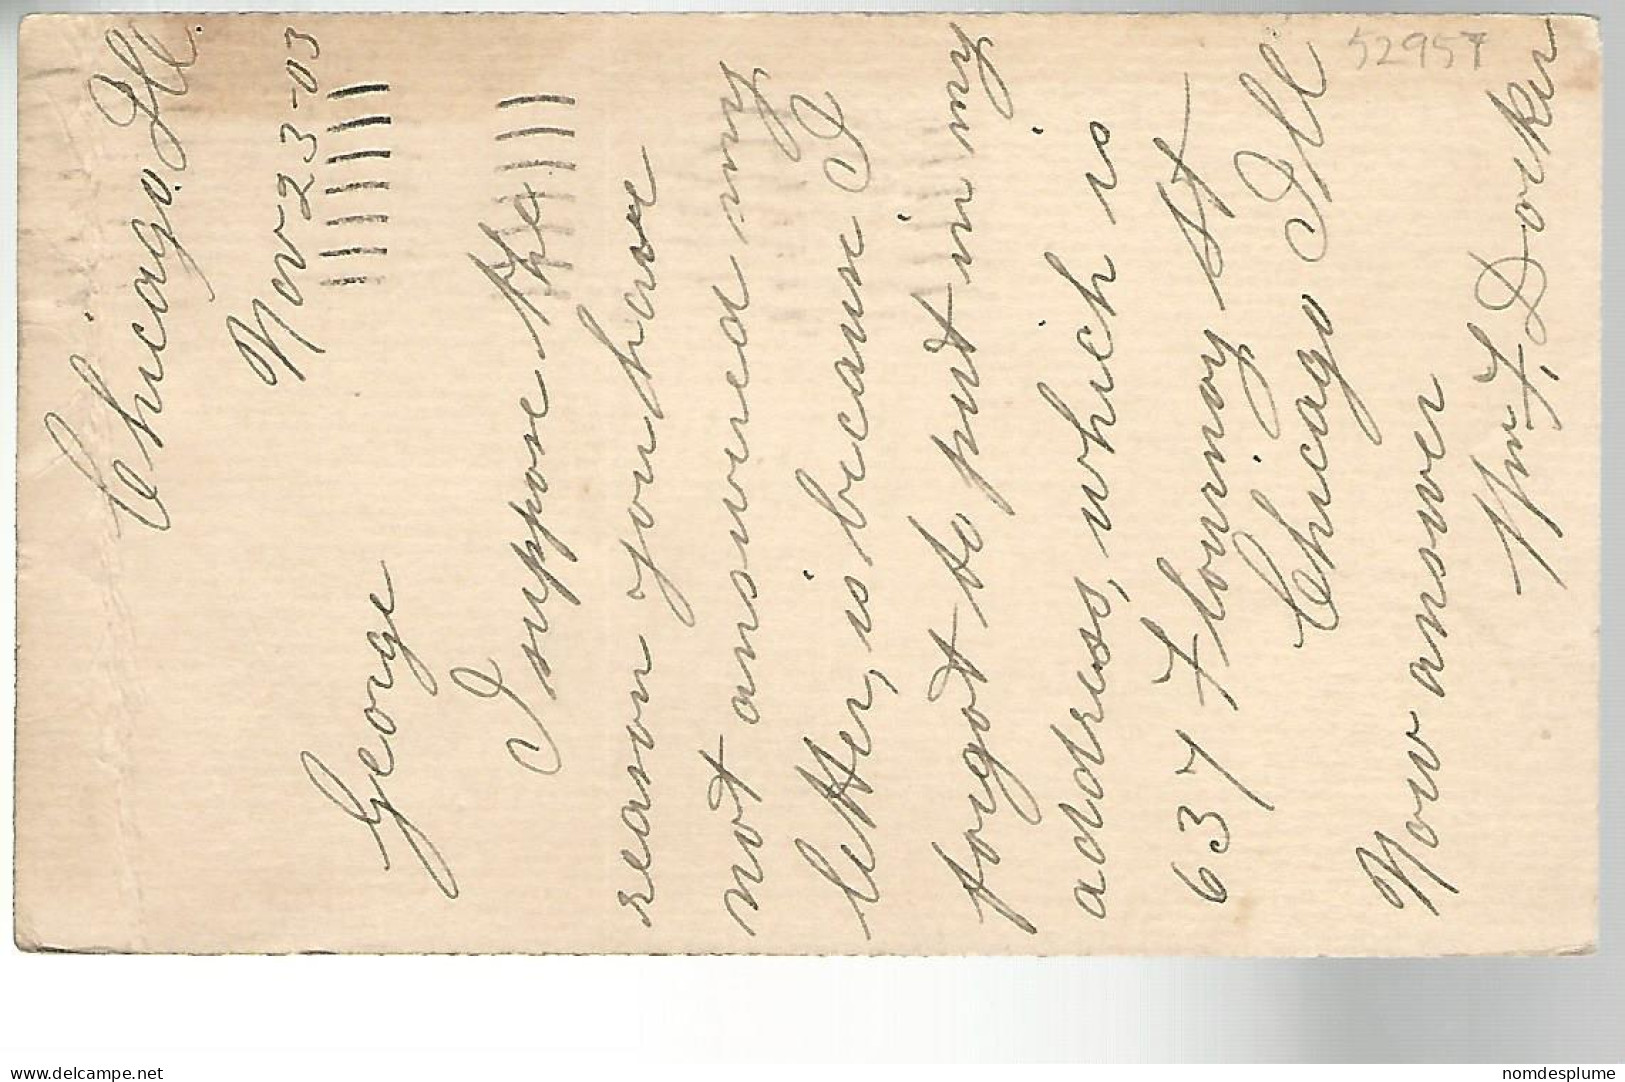 Chicago. Ill.
Nov 23-03
George
I suppose the
reason you have
not answered my
letter, is because I
forgot to put in my
address, which is
637 Flournoy St
Chicago Ill
Now answer
Wm F. Docker
52957
www.delcampe.net
nomdesplume